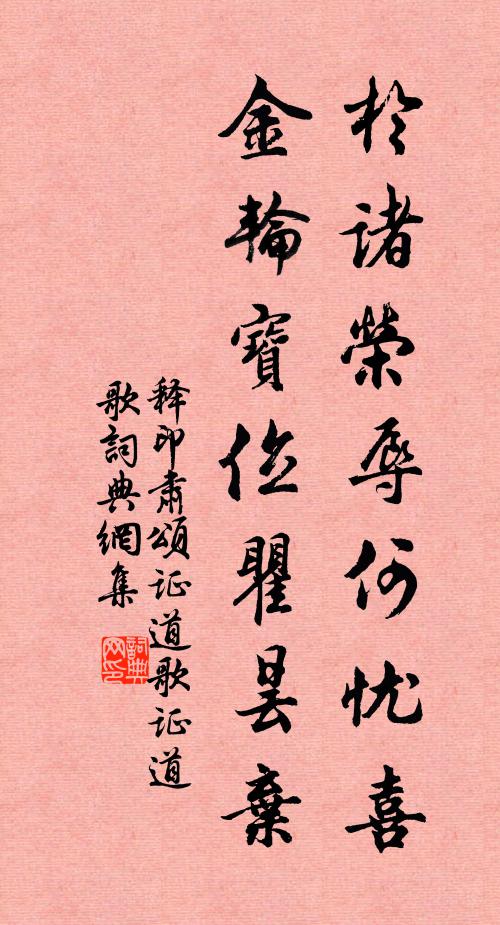 於諸榮辱何忧喜
金輪寶位瞿曇棄
释印肅頌证道歌证道
歌詞典網集
詞典网印